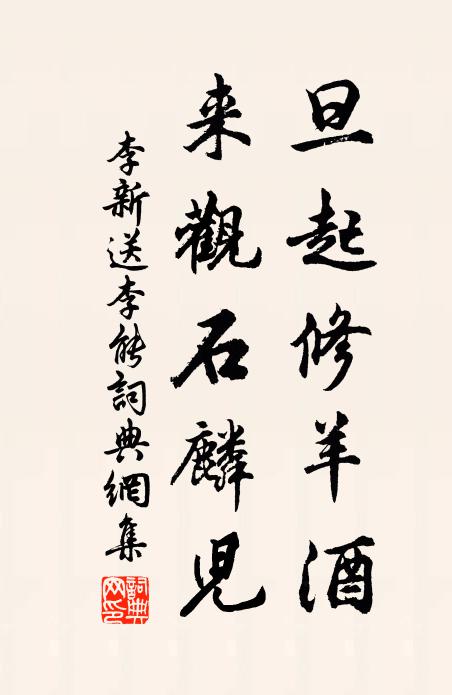 旦起修羊酒
来觀石麟児
李新送李能詞典網集
詞典网印